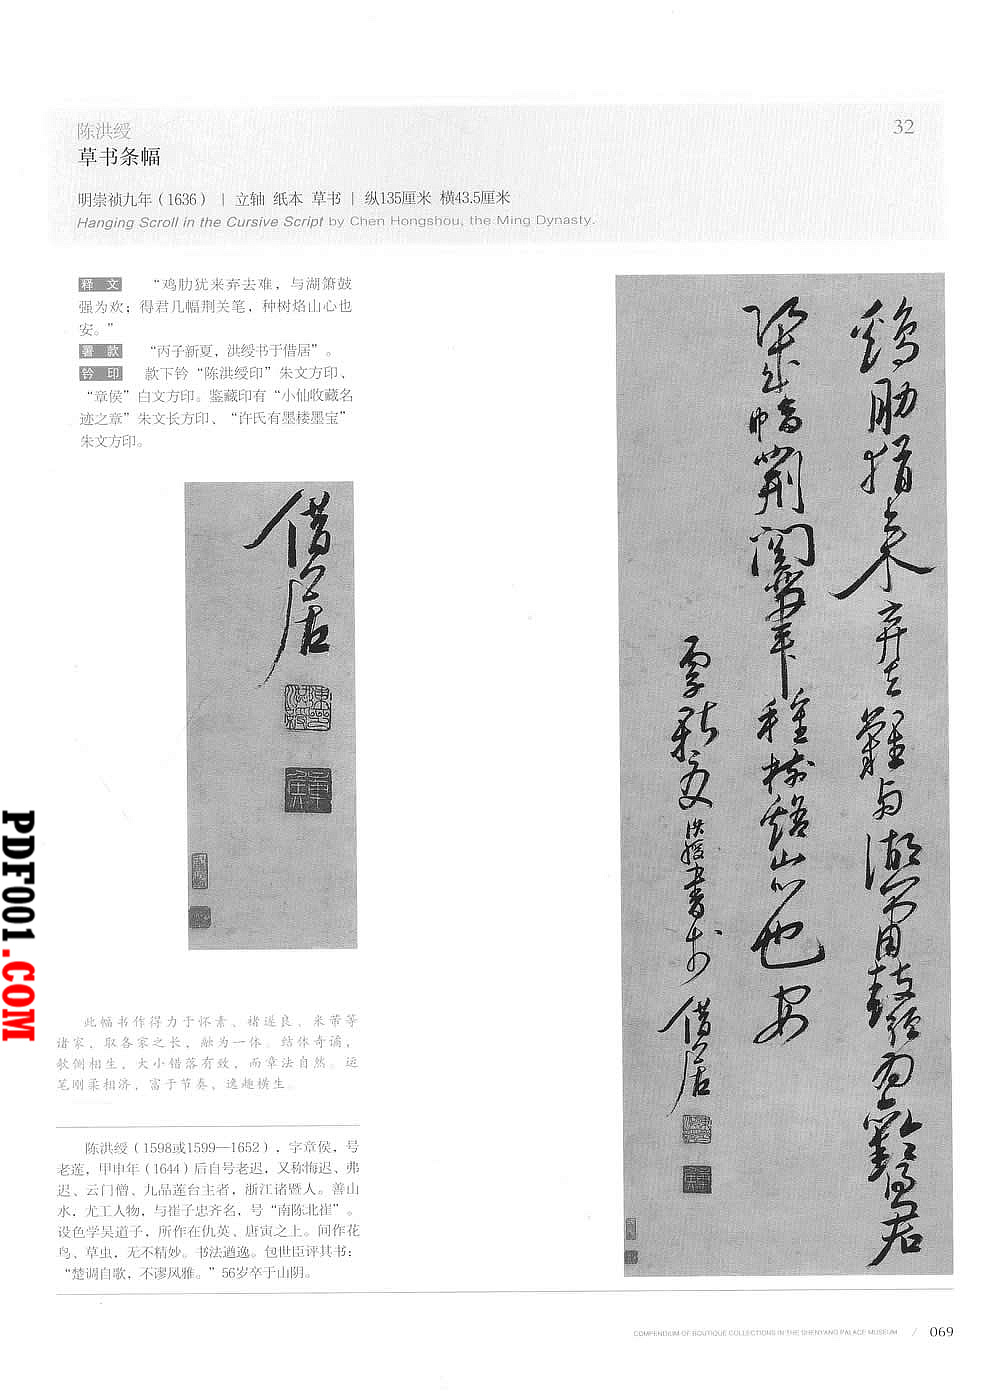 陈洪绶
32
草书条幅
明崇祯九年（1636） | 立轴 纸本 草书 | 纵135厘米 横43.5厘米
Hanging Scroll in the Cursive Script by Chen Hongshou, the Ming Dynasty.
释 文 “鸡肋犹来弃去难，与湖箫鼓
强为欢；得君几幅荆关笔，种树焰山心也
安。”
署 款 “丙子新夏，洪绶书于借居”。
钤 印 款下钤“陈洪绶印”朱文方印、
“章侯”白文方印。鉴藏印有“小仙收藏名
迹之章”朱文长方印、“许氏有墨楼墨宝”
朱文方印。
借居
此幅书作得力于怀素、褚遂良、米芾等
诸家，取各家之长，融为一体。结体奇谲，
欹侧相生，大小错落有致，而章法自然。运
笔刚柔相济，富于节奏，逸趣横生。
陈洪绶（1598或1599—1652），字章侯，号
老莲，甲申年（1644）后自号老迟，又称悔迟、弗
迟、云门僧、九品莲台主者，浙江诸暨人。善山
水，尤工人物，与崔子忠齐名，号“南陈北崔”。
设色学吴道子，所作在仇英、唐寅之上。间作花
鸟、草虫，无不精妙。书法遒逸。包世臣评其书：
“楚调自歌，不谬风雅。”56岁卒于山阴。
COMPENDIUM OF BOUTIQUE COLLECTIONS IN THE SHENYANG PALACE MUSEUM / 069
PDF001.COM